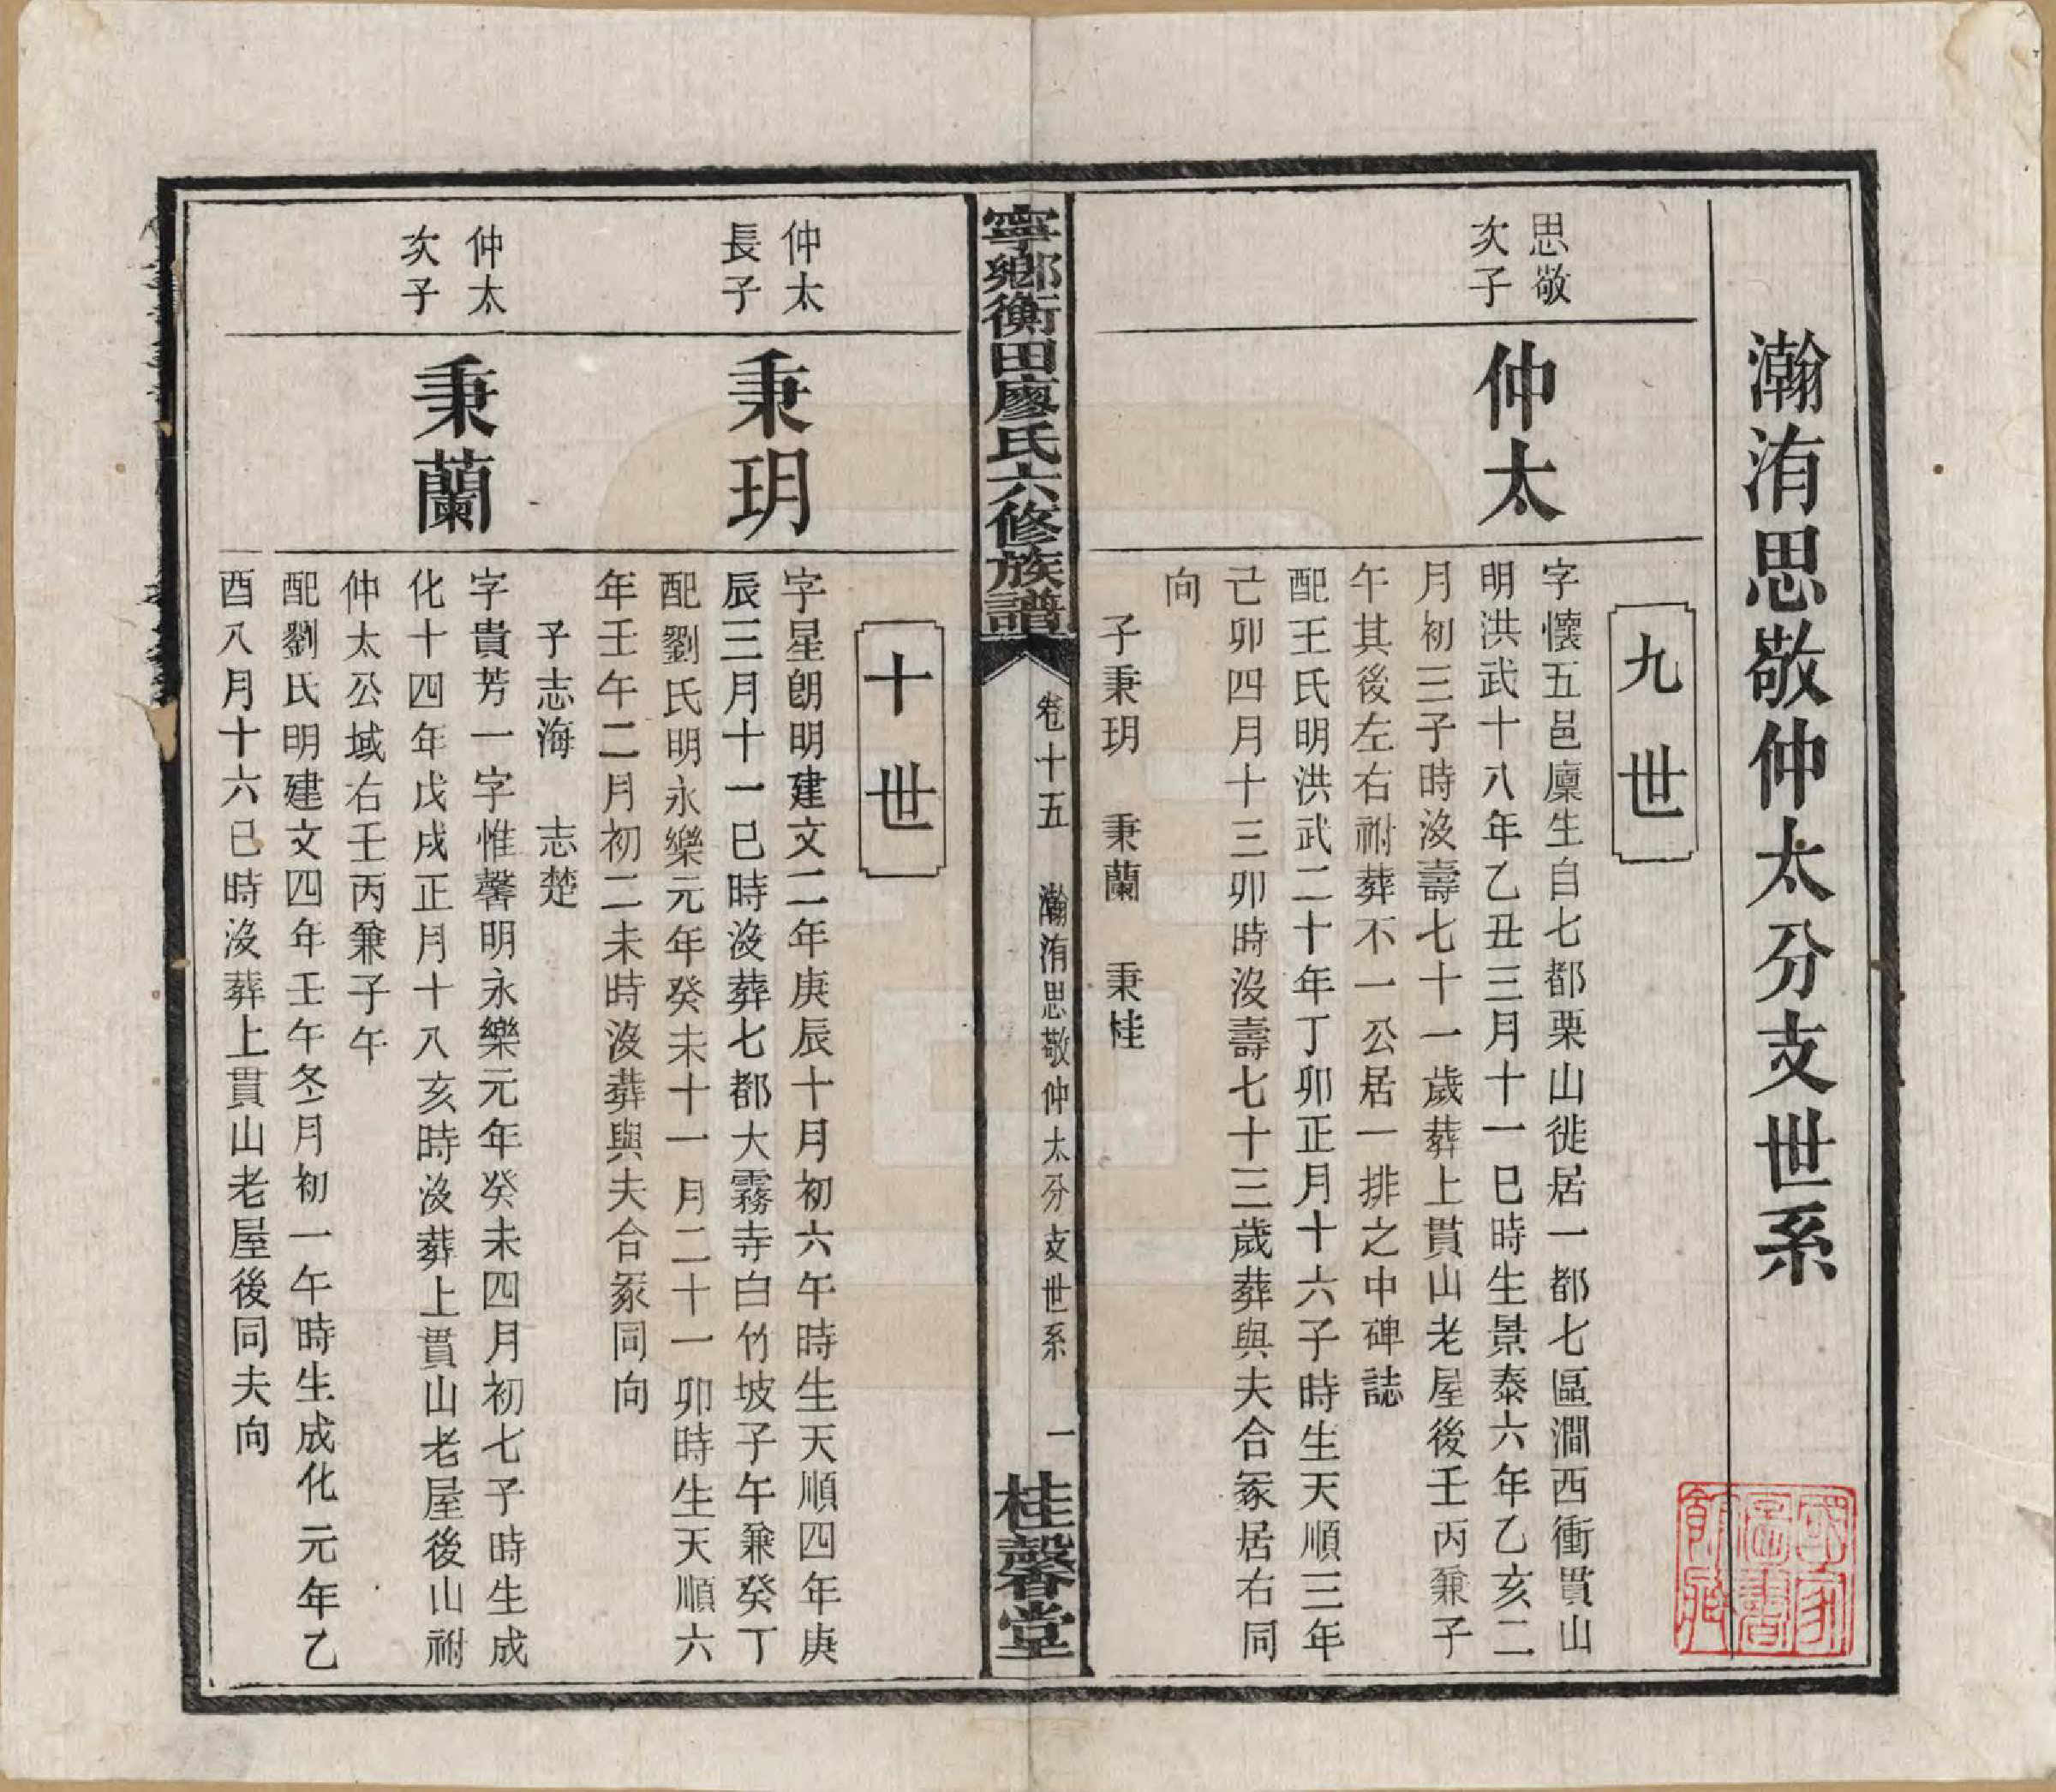 瀚洧思敬仲太分支世系
九世
思敬
次子
仲太
字懷五邑廩生自七都栗山徙居一都七區澗西衝貫山
明洪武十八年乙丑三月十一巳時生景泰六年乙亥二
月初三子時沒壽七十一歲葬上貫山老屋後壬丙兼子
午其後左右祔葬不一公居一排之中碑誌
配王氏明洪武二十年丁卯正月十六子時生天順三年
己卯四月十三卯時沒壽七十三歲葬與夫合冢居右同
向
子秉玥　秉蘭　秉桂
寧鄉衡田廖氏六修族譜
卷十五　瀚洧思敬仲太分支世系　一
桂馨堂
十世
仲太
長子
秉玥
字星朗明建文二年庚辰十月初六午時生天順四年庚
辰三月十一巳時沒葬七都大霧寺白竹坡子午兼癸丁
配劉氏明永樂元年癸未十一月二十一卯時生天順六
年壬午二月初二未時沒葬與夫合冢同向
子志海　志楚
仲太
次子
秉蘭
字貴芳一字惟馨明永樂元年癸未四月初七子時生成
化十四年戊戌正月十八亥時沒葬上貫山老屋後山祔
仲太公域右壬丙兼子午
配劉氏明建文四年壬午冬月初一午時生成化元年乙
酉八月十六巳時沒葬上貫山老屋後同夫向
國家
圖書
館藏